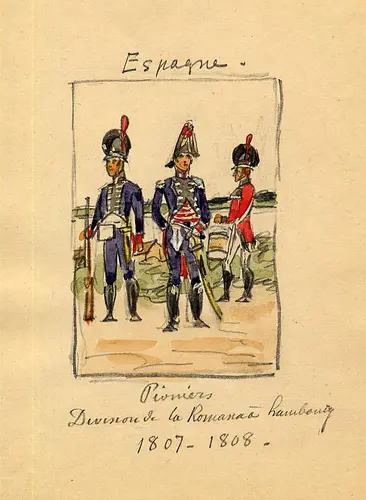 Espagne.
Pioniers
Division de la Romana à hambourg
1807-1808-